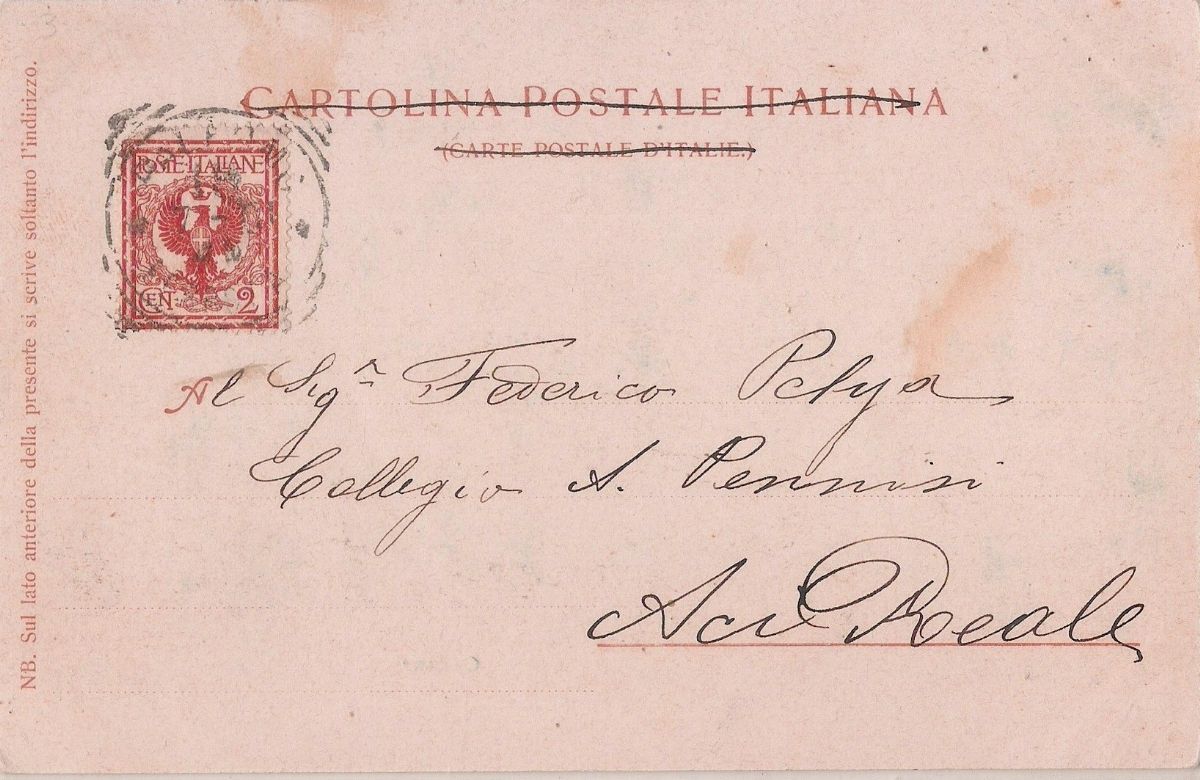 CARTOLINA POSTALE ITALIANA
(CARTE POSTALE D'ITALIE.)
POSTE·ITALIANE
CENT 2
Al Sigr Federico Pelya
Collegio S. Pennisi
Aci Reale
NB. Sul lato anteriore della presente si scrive soltanto l'indirizzo.